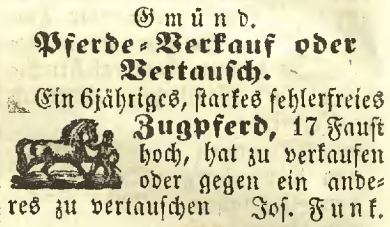 Gmünd.
Pferde-Verkauf oder
Vertausch.
Ein 6jähriges, starkes fehlerfreies
Zugpferd, 17 Faust
hoch, hat zu verkaufen
oder gegen ein ande-
res zu vertauschen Jos. Funk.